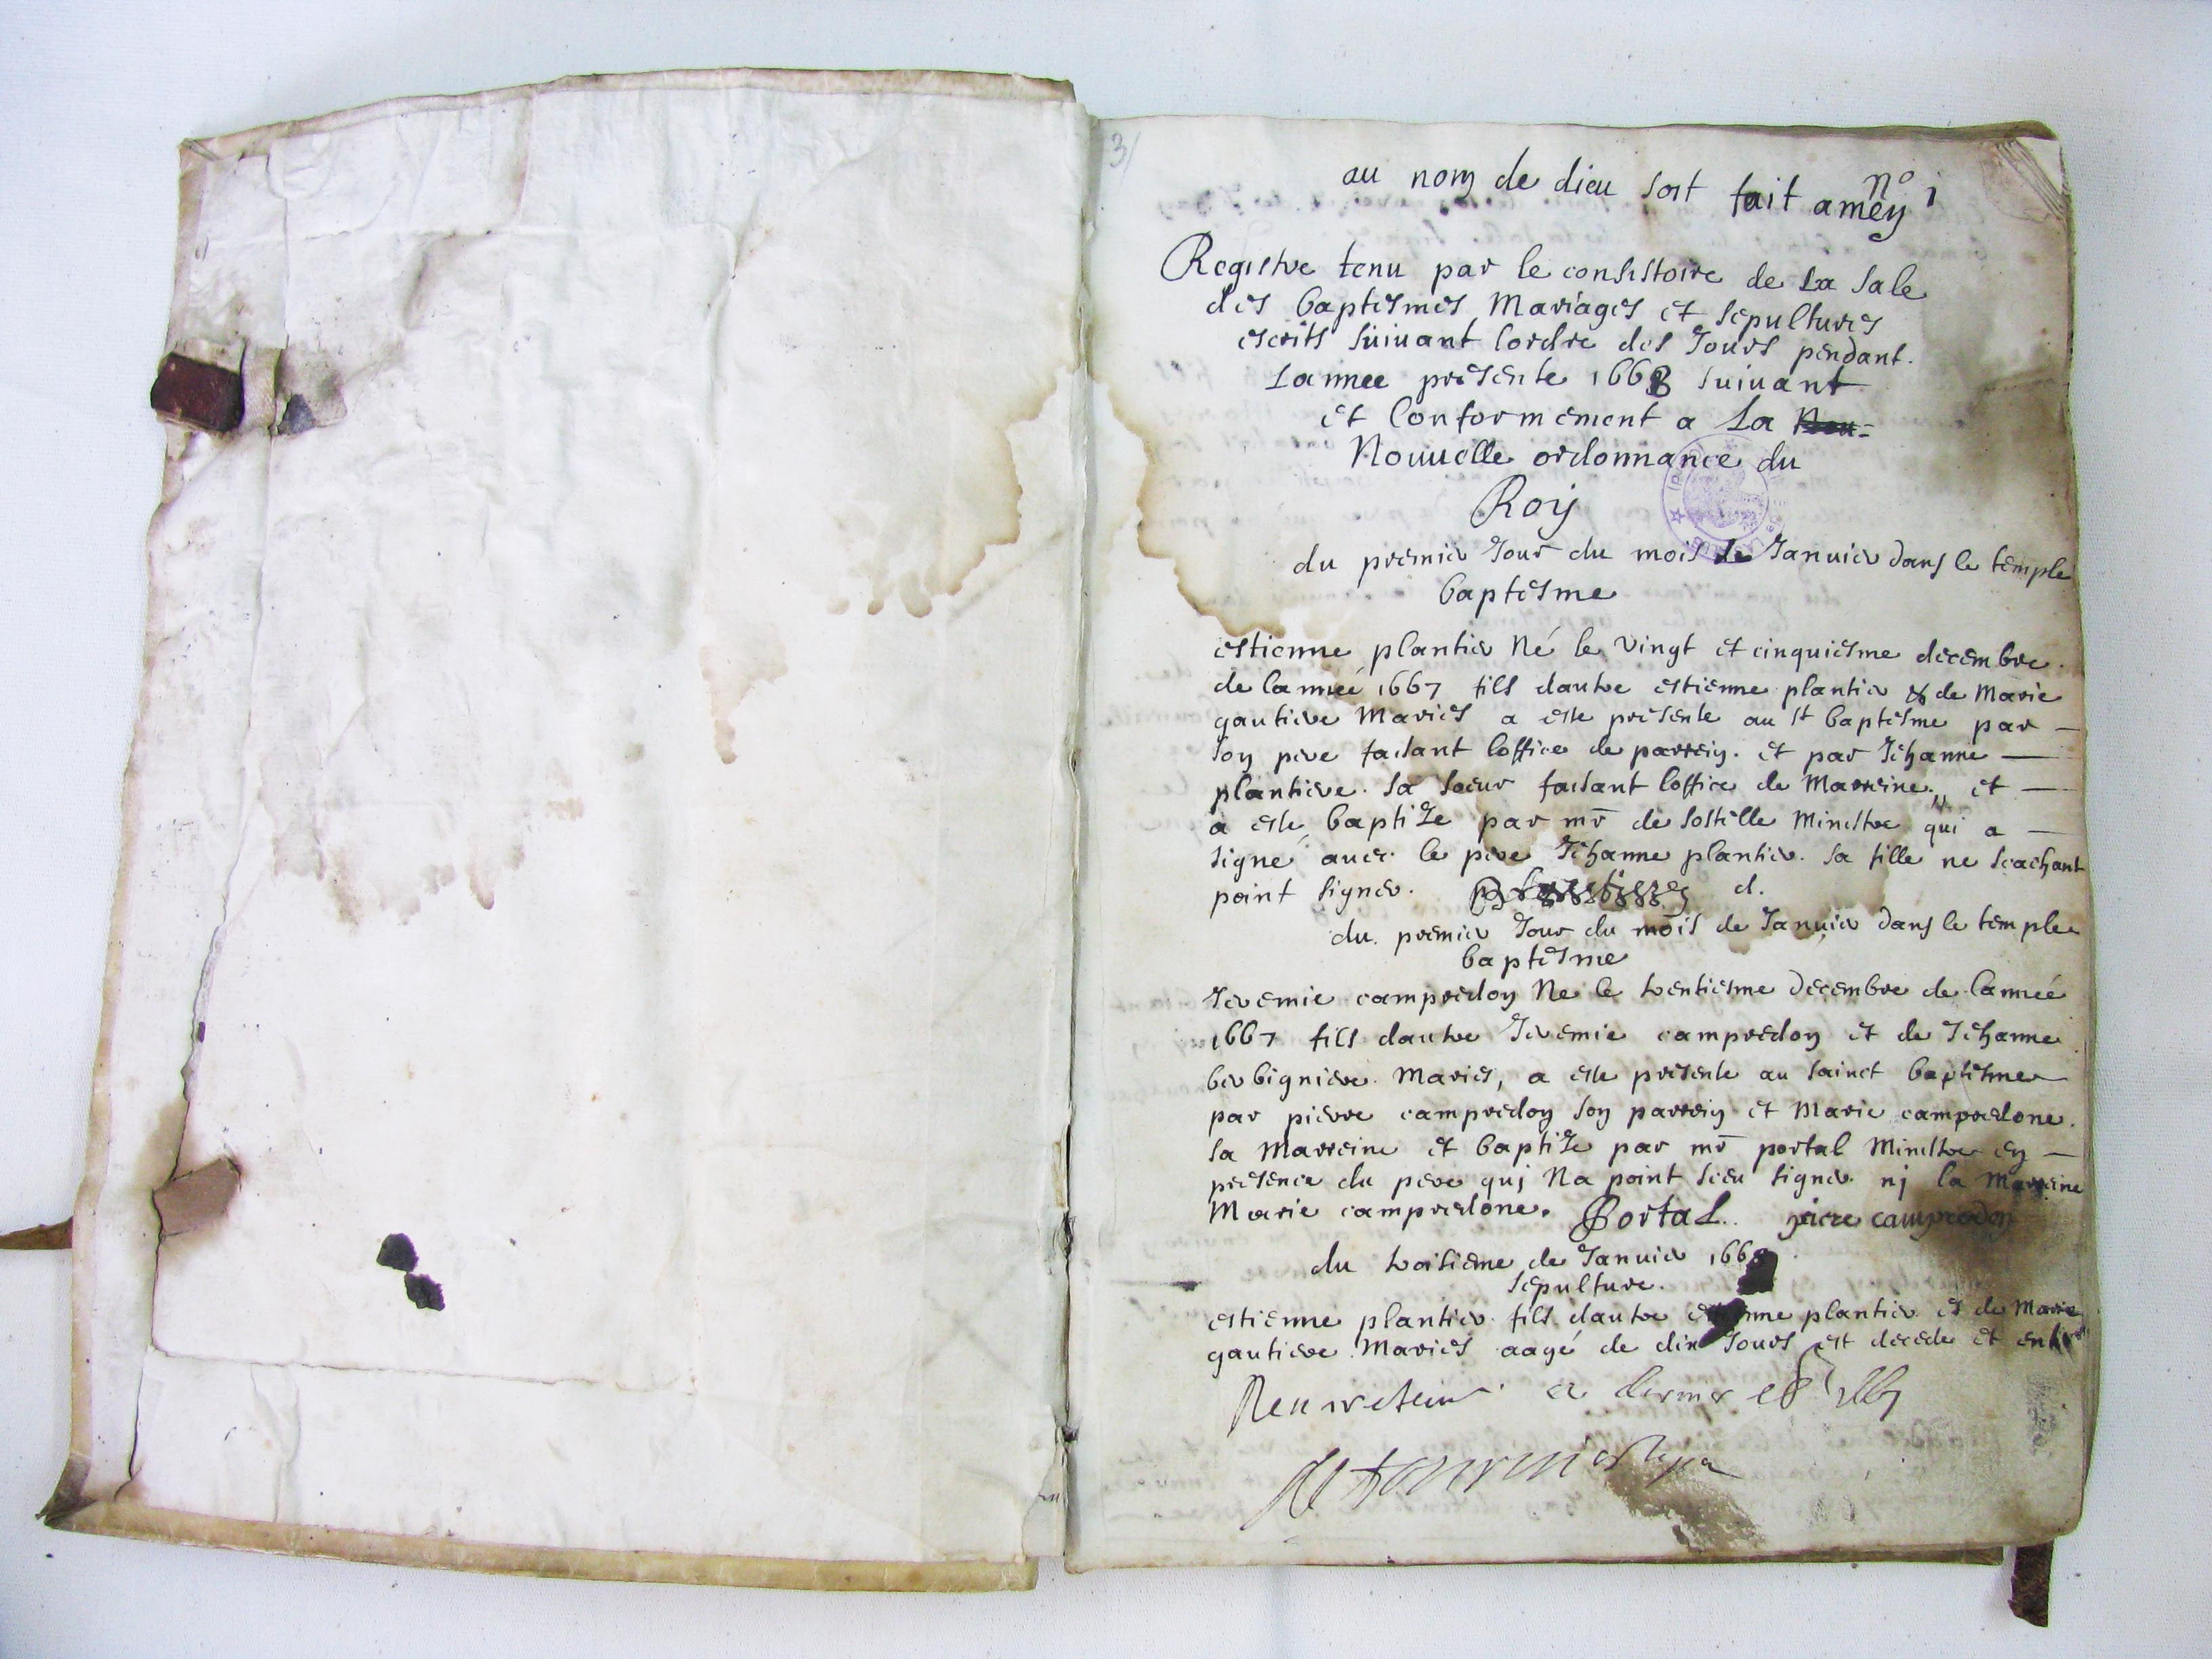 3/
au nom de dieu soit fait amen
n° 1
Registre tenu par le consistoire de La Sale
des baptesmes Mariages et sepultures
escrits suiuant lordre des Jours pendant.
Lannee presente 1668 suiuant
et Conformement a La Nou-
Nouuelle ordonnance du
Roy
du premier Jour du mois de Januier dans le temple
baptesme
estienne plantier Né le vingt et cinquiesme decembre.
de lanneé 1667 fils dautre estienne plantier & de Marie
gautiere Maries a este presente au st baptesme par —
son pere faisant loffice de parrein. et par Jehanne —
plantiere. sa soeur faisant loffice de Marreine. et —
a este baptize par mr de sostelle Ministre qui a —
signé auec le pere Jehanne plantier. sa fille ne scachant
point signer. d.
du. premier Jour du mois de Januier dans le temple
baptesme
Jeremie campredon Ne le trentiesme decembre de lanneé
1667 fils dautre Jeremie campredon et de Jehanne
berbigniere. Maries, a este presente au sainct baptesme
par pierre campredon son parrein et Marie campredone.
sa Marreine et baptize par mr portal Ministre en —
presence du pere quj Na point sceu signer. nj la Marreine
Marie campredone. Portal. piere campredon
du troisieme de Januier 1668
sepulture.
estienne plantier. fils. dautre estienne plantier et de Marie
gautiere. Maries aagé de dix Jours est decede et